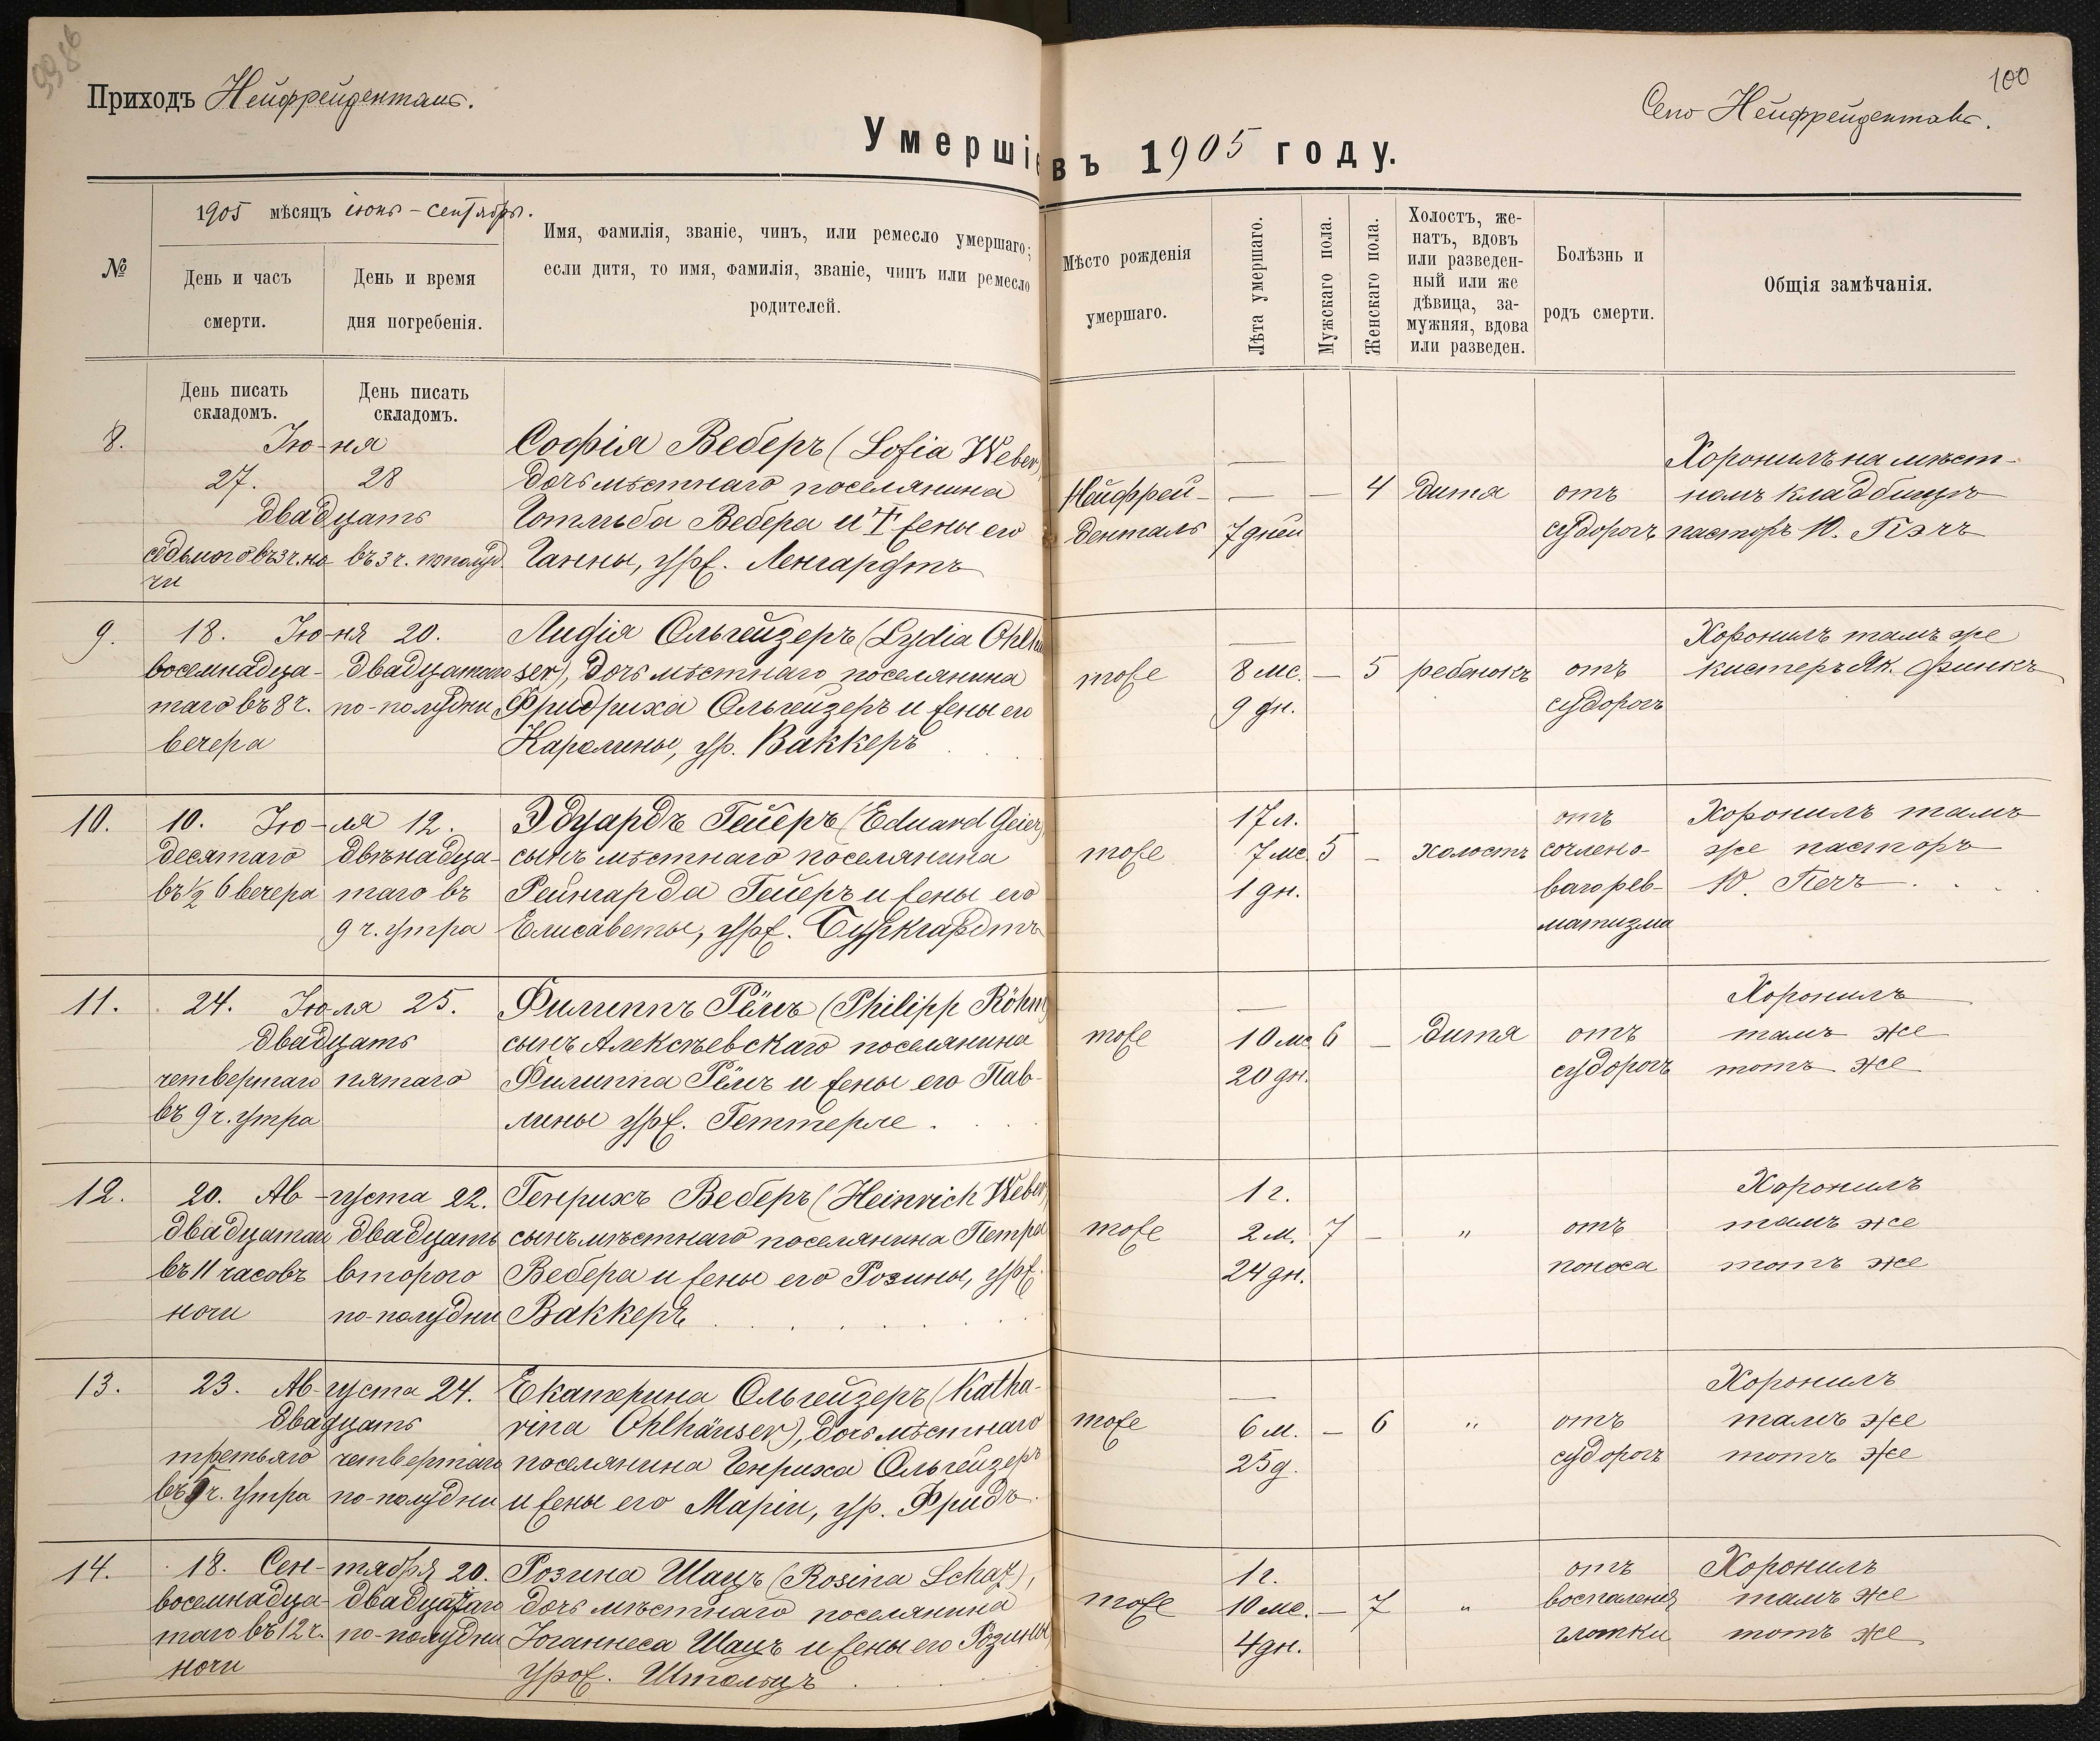 99 об
Приходъ Нейфрейденталь.
100
Село Нейфрейденталь.
Умершіе въ 1905 году.
№
1905 мѣсяцъ іюнь – сентябрь.
День и часъ
смерти.
День и время
дня погребенія.
Имя, фамилія, званіе, чинъ, или ремесло умершаго;
если дитя, то имя, фамилія, званіе, чинъ или ремесло
родителей.
Мѣсто рожденія
умершаго.
Лѣта умершаго.
Мужскаго пола.
Женскаго пола.
Холостъ, же-
натъ, вдовъ
или разведен-
ный или же
дѣвица, за-
мужняя, вдова
или разведен.
Болѣзнь и
родъ смерти.
Общія замѣчанія.
День писать
складомъ.
День писать
складомъ.
8. Ію-ня Софія Веберъ (Sofia Weber) — Хоронилъ на мѣст-
27. 28 дочь мѣстнаго поселянина Нейфрей- — — 4 дитя отъ номъ кладбищѣ
двадцать Готлиба Вебера и † жены его денталь 7 дней судорогъ пасторъ Ю. Пэчъ
седьмого въ 3 ч. но- въ 3 ч. пополуд. Ганны, урж. Ленгардтъ
чи
9. 18. Ію-ня 20. Лидія Ольгейзеръ (Lydia Ohlhäu — Хоронилъ тамъ же
восемнадца- двадцатаго ser), дочь мѣстнаго поселянина тоже 8 мс. — 5 ребенокъ отъ кистеръ Як. Финкъ
таго въ 8 ч. по-полудни Фридриха Ольгейзеръ и жены его 9 дн. судорогъ
вечера Каролины, ур. Ваккеръ
10. 10. Ію-ля 12. Эдуардъ Гейеръ (Eduard Geier) 17 л. отъ Хоронилъ тамъ
десятаго двѣнадца- сынъ мѣстнаго поселянина тоже 7 мс. 5 – холостъ сочлено- же пасторъ
въ ½ 6 вечера таго въ Рейнгарда Гейеръ и жены его 1 дн. ваго рев- Ю. Печъ
9 ч. утра Елисаветы, урж. Буркгардтъ матизма
11. 24. Ію-ля 25. Филиппъ Рёмъ (Philipp Röhm) — Хоронилъ
двадцать сынъ Алексѣевскаго поселянина тоже 10 мс. 6 – дитя отъ тамъ же
четвертаго пятаго Филиппа Рёмъ и жены его Пав- 20 дн. судорогъ тотъ же
въ 9 ч. утра лины урж. Геттерле.
12. 20. Ав-густа 22. Генрихъ Веберъ (Heinrich Weber) 1 г. Хоронилъ
двадцатаго двадцать сынъ мѣстнаго поселянина Петра тоже 2 м. 7 – " отъ тамъ же
въ 11 часовъ второго Вебера и жены его Розины, урж. 24 дн. поноса тотъ же
ночи по-полудни Ваккеръ
13. 23. Ав-густа 24. Екатерина Ольгейзеръ (Katha- — Хоронилъ
двадцать rina Ohlhäuser), дочь мѣстнаго тоже 6 м. – 6 " отъ тамъ же
третьяго четвертаго поселянина Генриха Ольгейзеръ 25 д. судорогъ тотъ же
въ ч. утра по-полудни и жены его Маріи, ур. Фридъ.
14. 18. Сен-тября 20. Розина Шацъ (Rosina Schaz), 1 г. отъ Хоронилъ
восемнадца- двадцатаго дочь мѣстнаго поселянина тоже 10 мс. – 7 " воспаленія тамъ же
таго въ 12 ч. по-полудни Іоганнеса Шацъ и жены его Розины 4 дн. глотки тотъ же
ночи урож. Штольцъ.